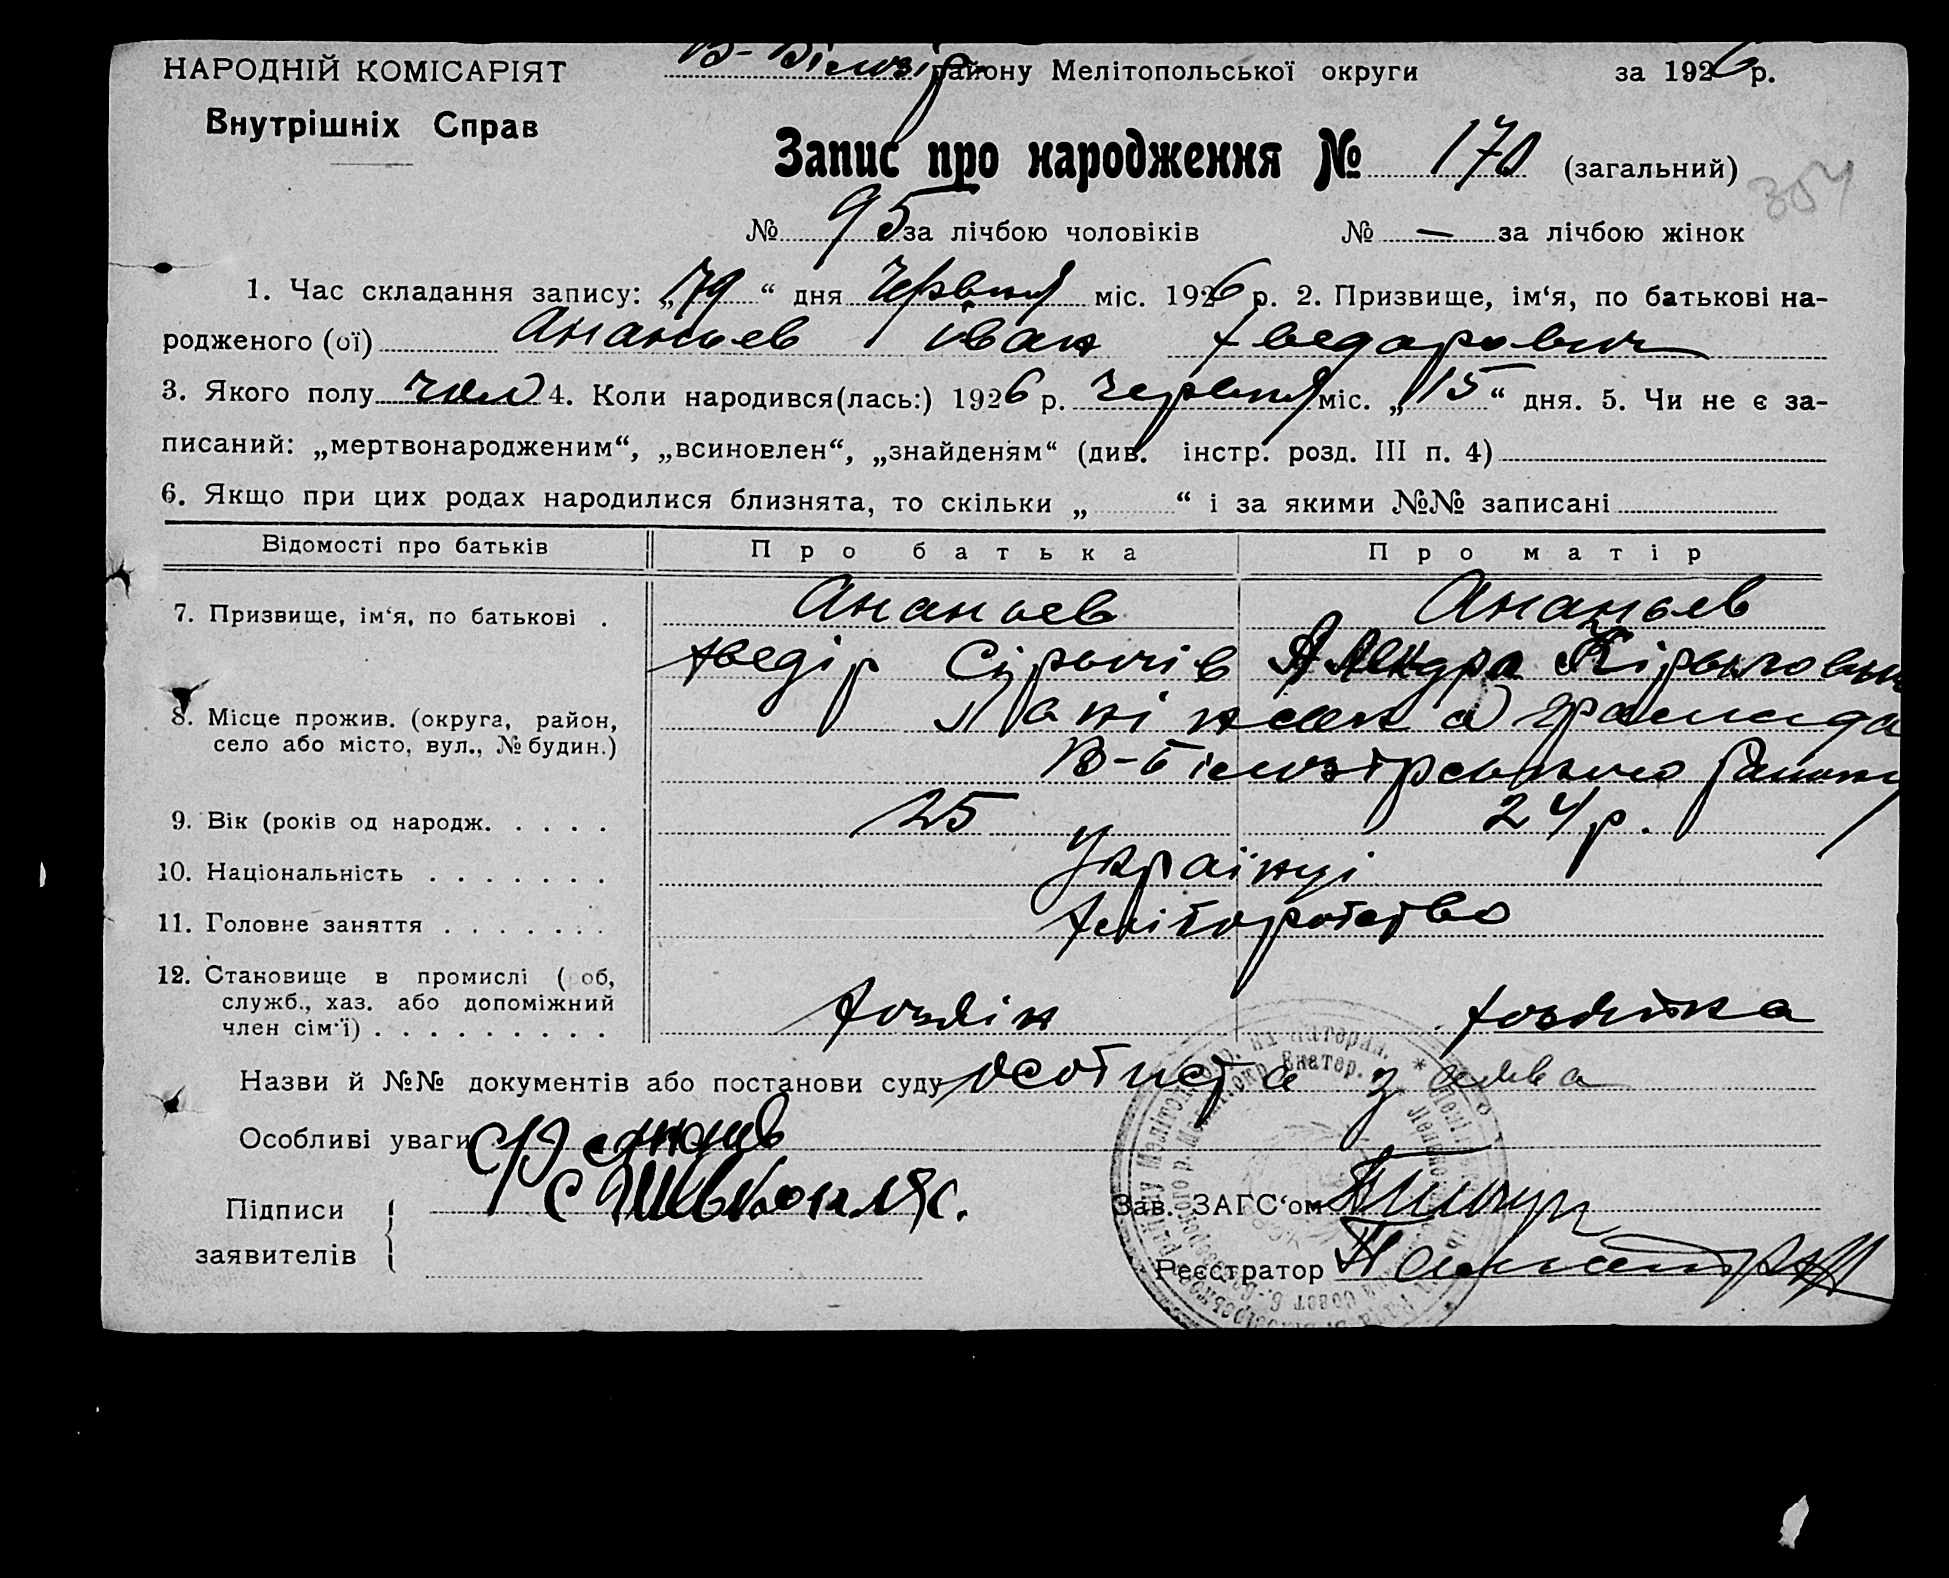 НАРОДНІЙ КОМІСАРІЯТ
Внутрішніх Справ
В-Білозір району Мелітопольської округи за 1926 р.
Запис про народження № 170 (загальний)
304
№ 95 за лічбою чоловіків № — за лічбою жінок
1. Час складання запису: „19“ дня червня міс. 1926 р. 2. Призвище, ім‘я, по батькові на-
родженого (ої) Ананьев Іван Хведарович
3. Якого полу чол 4. Коли народився(лась:) 1926 р. червня міс. „15“ дня. 5. Чи не є за-
писаний: „мертвонародженим“, „всиновлен“, „знайденям“ (див. інстр. розд. III п. 4)
6. Якщо при цих родах народилися близнята, то скільки „ “ і за якими №№ записані
Відомості про батьків Про батька Про матір
7. Призвище, ім‘я, по батькові . Ананьев Ананьев
Хведір
8. Місце прожив. (округа, район,
село або місто, вул., № будин.)
В-Білозірського Району
9. Вік (років од народж. . . . . 25 24 р.
10. Національність . . . . . . . Українці
11. Головне заняття . . . . . . . Хліборобство
12. Становище в промислі ( об,
служб., хаз. або допоміжний
член сім‘ї) . . . . . . . . . Хозяін Хозяйка
Назви й №№ документів або постанови суду особиста заява
Особливі уваги
Підписи
заявителів
Зав. ЗАГС‘ом
Реєстратор